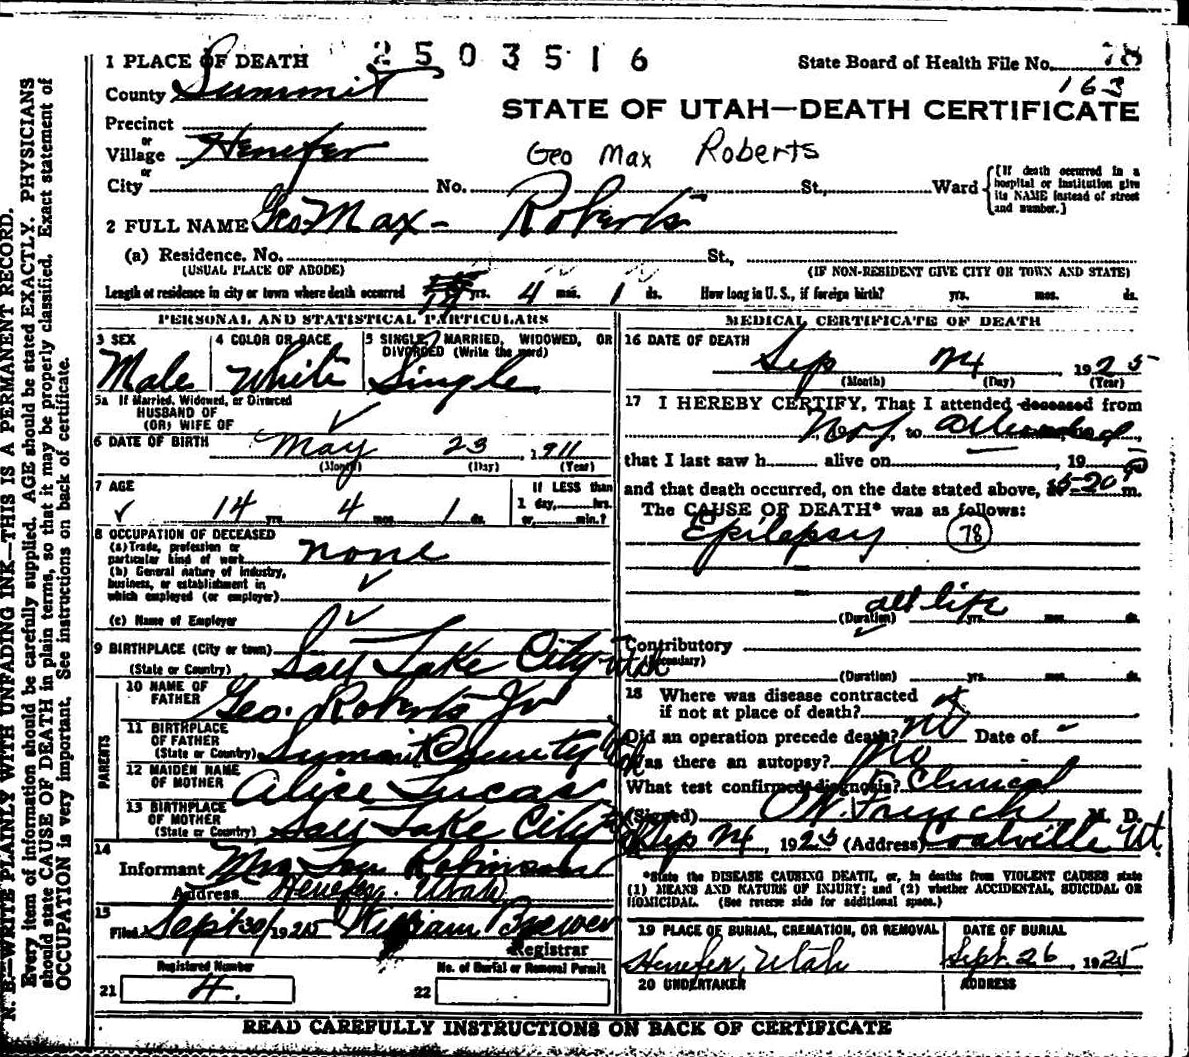 N. B.—WRITE PLAINLY WITH UNFADING INK—THIS IS A PERMANENT RECORD.
Every item of information should be carefully supplied. AGE should be stated EXACTLY. PHYSICIANS
should state CAUSE OF DEATH in plain terms, so that it may be properly classified. Exact statement of
OCCUPATION is very important. See instructions on back of certificate.
1 PLACE OF DEATH 2503516 State Board of Health File No. 78
163
County Summit
STATE OF UTAH—DEATH CERTIFICATE
Precinct
or
Village Henefer
Geo Max Roberts
or
City No. St., Ward
[If death occurred in a
hospital or institution give
its NAME instead of street
and number.]
2 FULL NAME Geo Max - Roberts
(a) Residence. No. St.,
(USUAL PLACE OF ABODE) (IF NON-RESIDENT GIVE CITY OR TOWN AND STATE)
Length of residence in city or town where death occurred 14 yrs. 4 mos. 1 ds. How long in U. S., if foreign birth? yrs. mos. ds.
PERSONAL AND STATISTICAL PARTICULARS
3 SEX 4 COLOR OR RACE 5 SINGLE, MARRIED, WIDOWED, OR
DIVORCED (Write the word)
Male White Single
5a If Married, Widowed, or Divorced
HUSBAND OF
(OR) WIFE OF
6 DATE OF BIRTH May 23, 1911
(Month) (Day) (Year)
7 AGE If LESS than
14 yrs. 4 mos. 1 ds. 1 day, hrs.
or, min.?
8 OCCUPATION OF DECEASED
(a) Trade, profession or
particular kind of work none
(b) General nature of industry,
business, or establishment in
which employed (or employer)
(c) Name of Employer
9 BIRTHPLACE (City or town)
(State or Country) Salt Lake City Utah
PARENTS
10 NAME OF
FATHER Geo. Roberts Jr
11 BIRTHPLACE
OF FATHER
(State or Country) Summit County Utah
12 MAIDEN NAME
OF MOTHER Alice Lucas
13 BIRTHPLACE
OF MOTHER
(State or Country) Salt Lake City
14
Informant Mrs Robinson
Address Henefer. Utah
15
Filed Sept 30/1925 William Brewer
Registrar
Registered Number No. of Burial or Removal Permit
21 4. 22
MEDICAL CERTIFICATE OF DEATH
16 DATE OF DEATH
Sep 24, 1925
(Month) (Day) (Year)
17 I HEREBY CERTIFY, That I attended deceased from
Not, 19 , to attended, 19
that I last saw h alive on , 19
and that death occurred, on the date stated above, at 5-20 P m.
The CAUSE OF DEATH* was as follows:
Epilepsy 78
all life
(Duration) yrs. mos. ds.
Contributory
(Secondary)
(Duration) yrs. mos. ds.
18 Where was disease contracted
if not at place of death?
Did an operation precede death? no Date of -
Was there an autopsy? No
What test confirmed diagnosis? Clinical
(Signed) O W. French M. D.
Sep 24 1925 (Address) Coalville Ut.
*State the DISEASE CAUSING DEATH, or, in deaths from VIOLENT CAUSES state
(1) MEANS AND NATURE OF INJURY; and (2) whether ACCIDENTAL, SUICIDAL OR
HOMICIDAL. (See reverse side for additional space.)
19 PLACE OF BURIAL, CREMATION, OR REMOVAL DATE OF BURIAL
Henefer, Utah Sept. 26, 1925
20 UNDERTAKER ADDRESS
READ CAREFULLY INSTRUCTIONS ON BACK OF CERTIFICATE